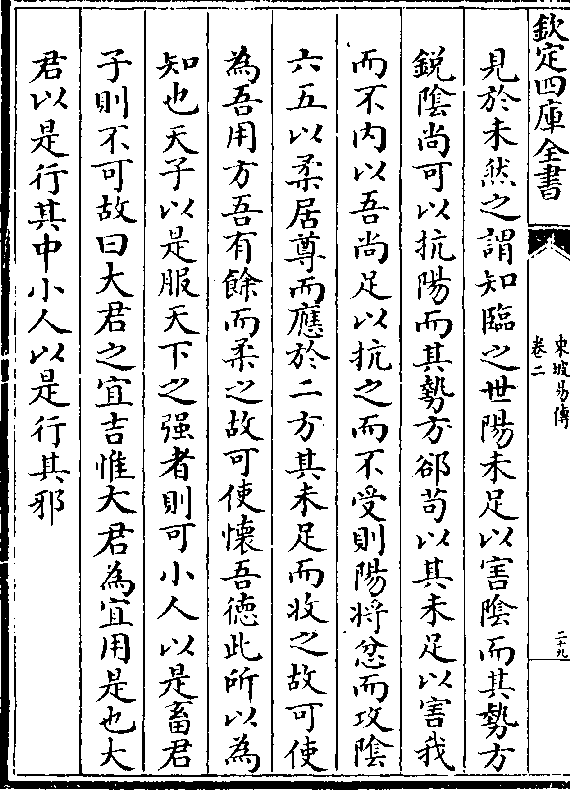 欽定四庫全書
東坡易傳
卷二
二十九
見於未然之謂知臨之世陽未足以害陰而其勢方
銳陰尚可以抗陽而其勢方郤苟以其未足以害我
而不内以吾尚足以抗之而不受則陽將忿而攻陰
六五以柔居尊而應於二方其未足而收之故可使
為吾用方吾有餘而柔之故可使懷吾徳此所以為
知也天子以是服天下之强者則可小人以是畜君
子則不可故曰大君之宜吉惟大君為宜用是也大
君以是行其中小人以是行其邪